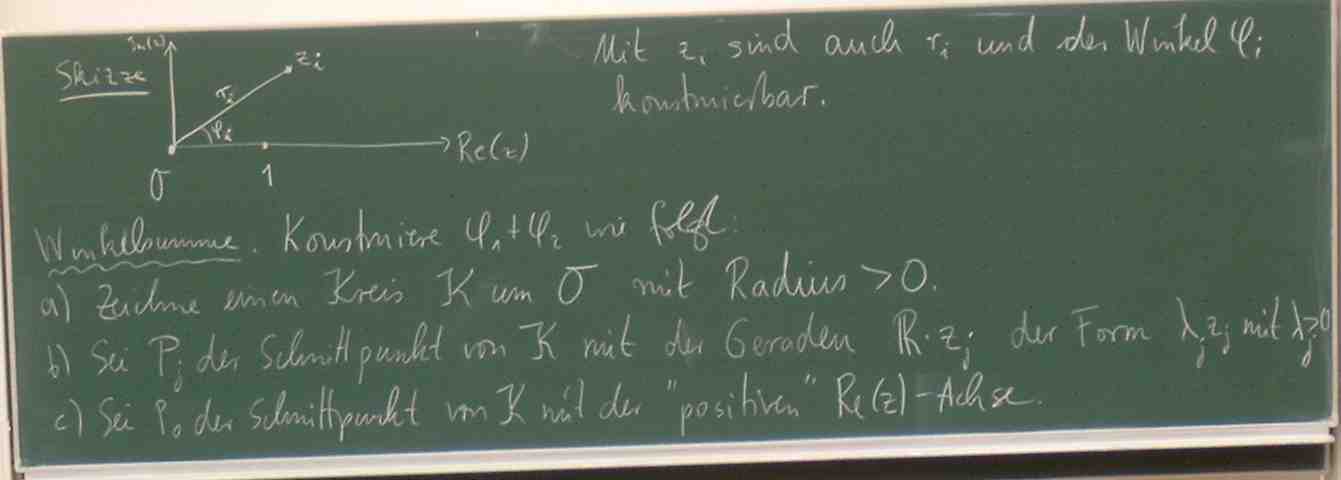 Im(z)
Skizze
z_i
r_i
φ_i
Re(z)
0
1
Mit z_i sind auch r_i und der Winkel φ_i
konstruierbar.
Winkelsumme. Konstruiere φ_1+φ_2 wie folgt:
a) Zeichne einen Kreis K um 0 mit Radius > 0.
b) Sei P_j der Schnittpunkt von K mit der Geraden ℝ·z_j der Form λ_j z_j mit λ_j>0
c) Sei P_0 der Schnittpunkt von K mit der "positiven" Re(z)-Achse.